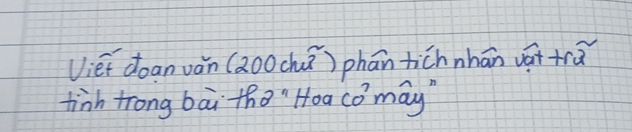 Viết đoạn văn (200 chữ) phân tích nhân vật trữ
tình trong bài thơ "Hoa cỏ mây"